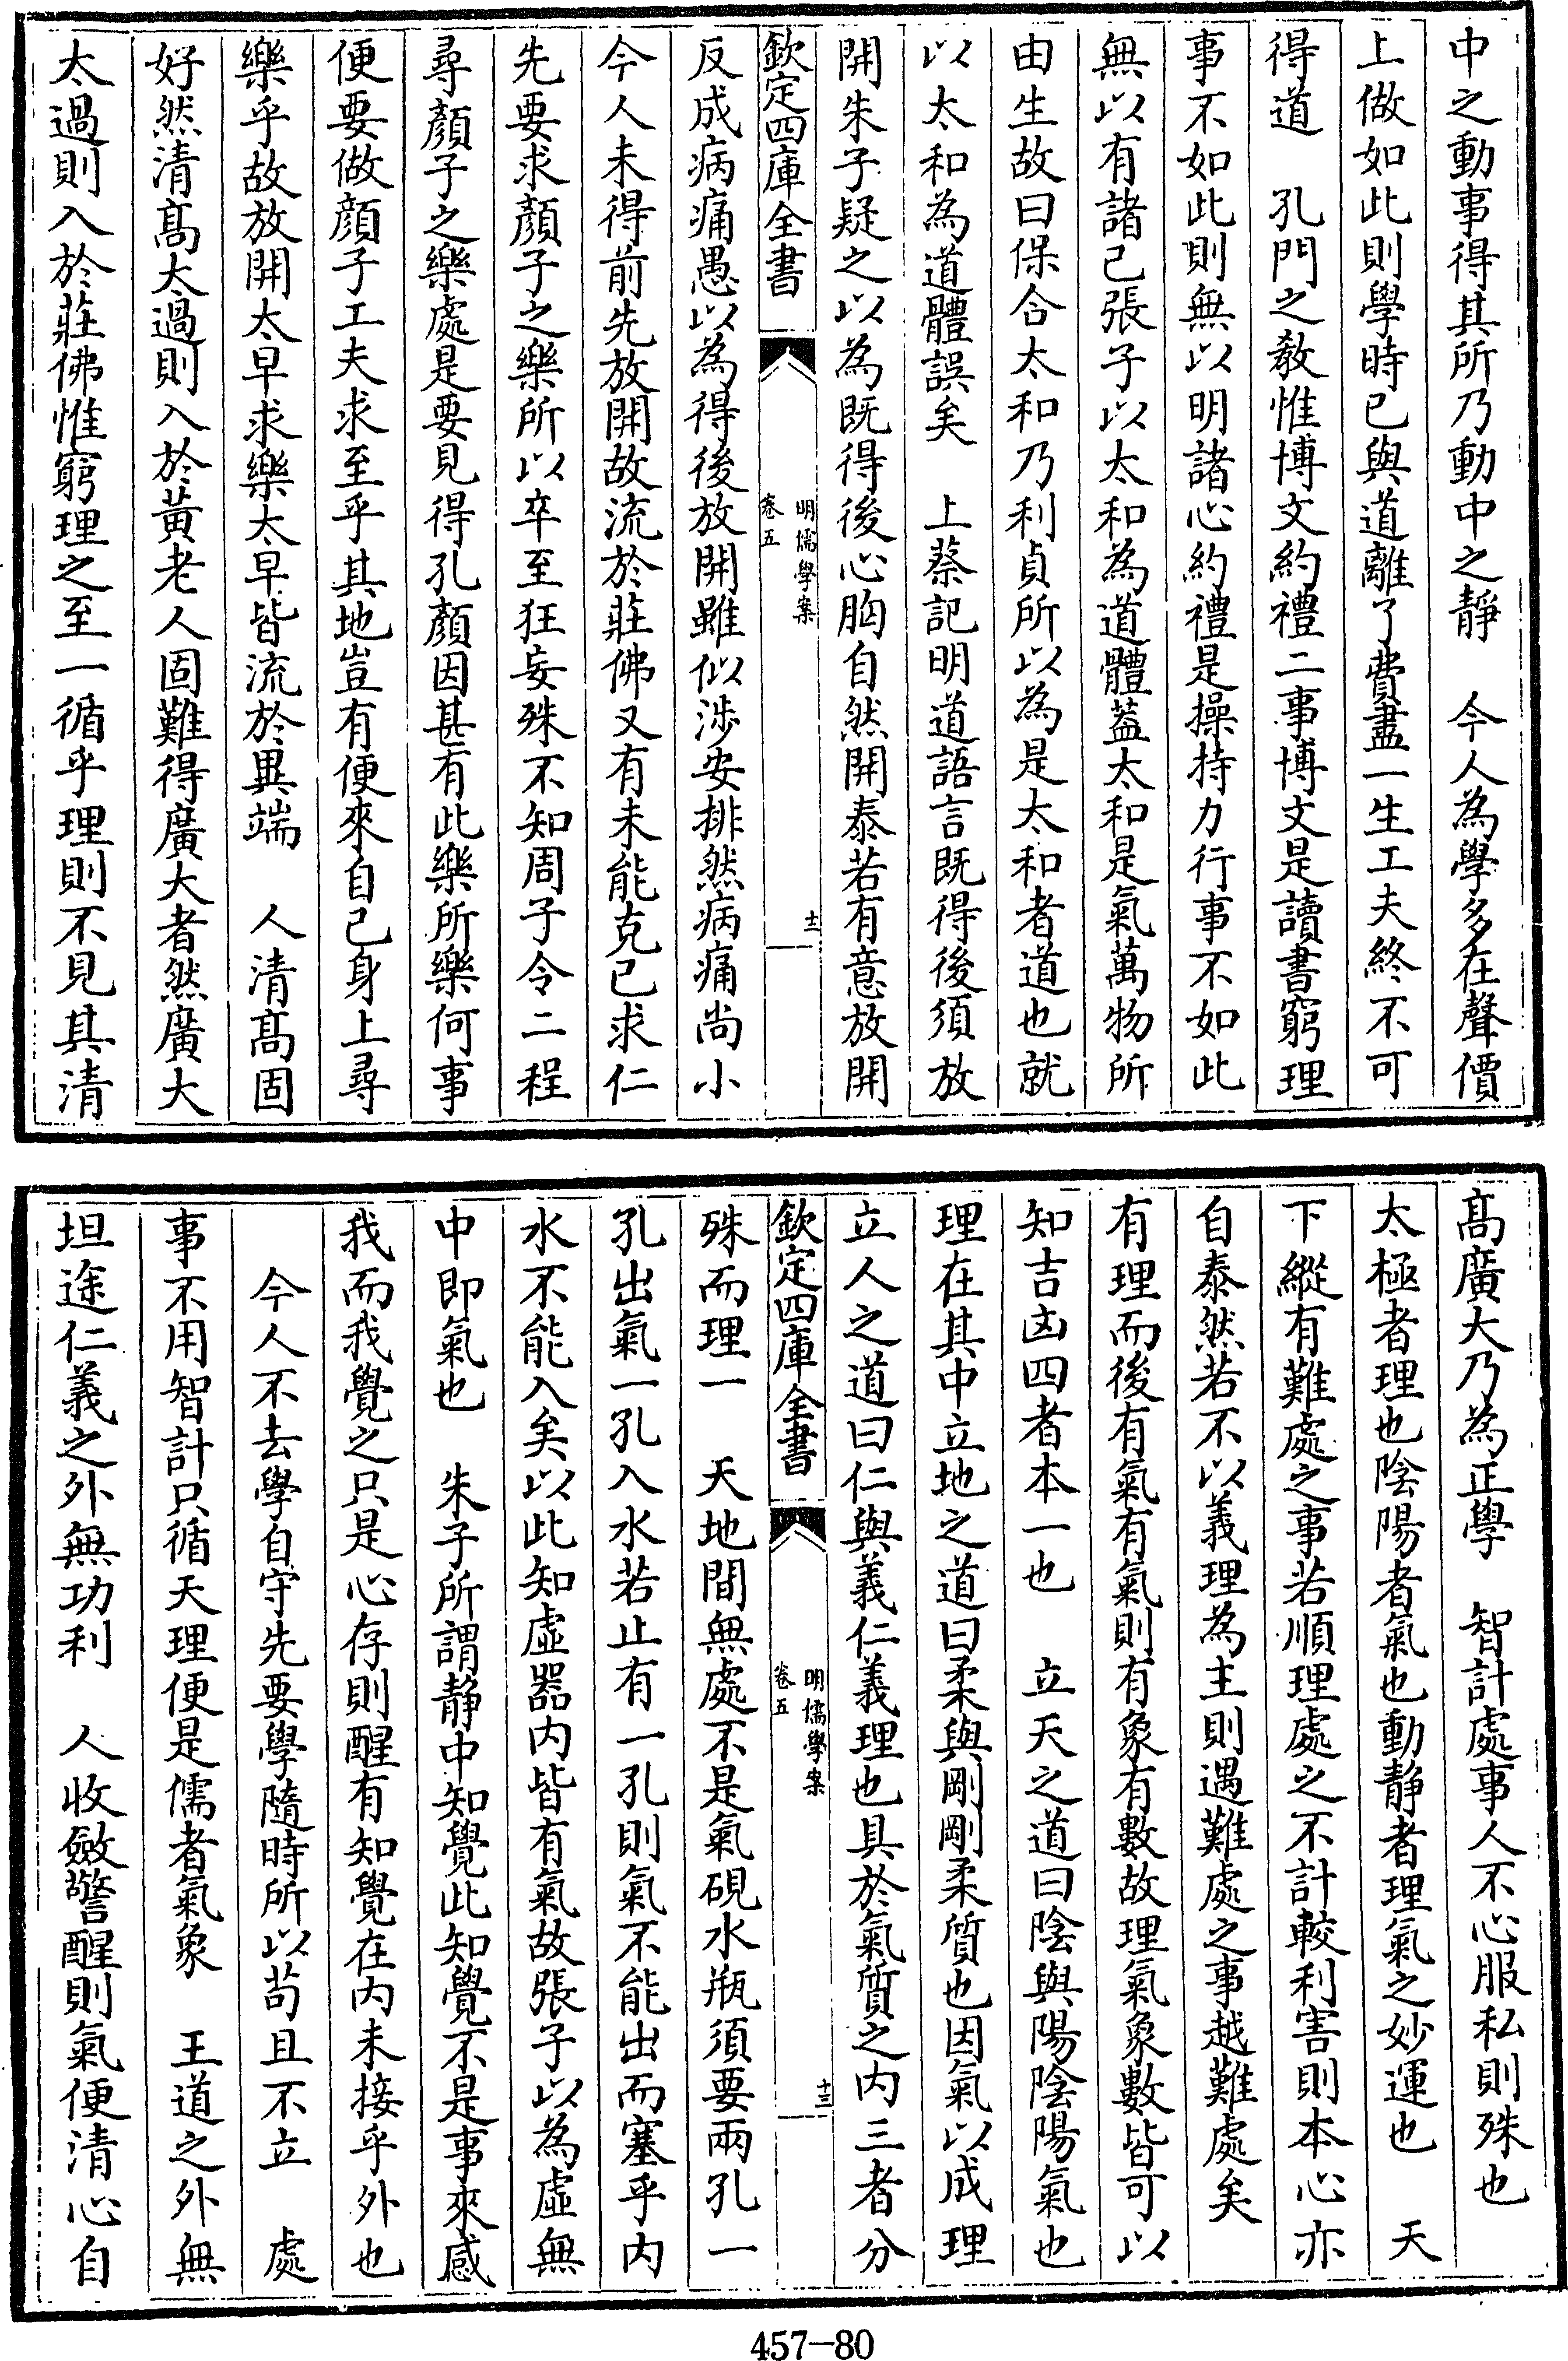 中之動事得其所乃動中之靜　今人為學多在聲價
上做如此則學時已與道離了費盡一生工夫終不可
得道　孔門之敎惟博文約禮二事博文是讀書窮理
事不如此則無以明諸心約禮是操持力行事不如此
無以有諸己張子以太和為道體葢太和是氣萬物所
由生故曰保合太和乃利貞所以為是太和者道也就
以太和為道體誤矣　上蔡記明道語言既得後須放
開朱子疑之以為既得後心胸自然開泰若有意放開
欽定四庫全書
明儒學案
卷五
十二
反成病痛愚以為得後放開雖似涉安排然病痛尚小
今人未得前先放開故流於莊佛又有未能克己求仁
先要求顏子之樂所以卒至狂妄殊不知周子令二程
尋顏子之樂處是要見得孔顏因甚有此樂所樂何事
便要做顏子工夫求至乎其地豈有便來自己身上尋
樂乎故放開太早求樂太早皆流於異端　人清髙固
好然清髙太過則入於黃老人固難得廣大者然廣大
太過則入於莊佛惟窮理之至一循乎理則不見其清
髙廣大乃為正學　智計處事人不心服私則殊也
太極者理也陰陽者氣也動靜者理氣之妙運也　天
下縱有難處之事若順理處之不計較利害則本心亦
自泰然若不以義理為主則遇難處之事越難處矣
有理而後有氣有氣則有象有數故理氣象數皆可以
知吉凶四者本一也　立天之道曰陰與陽陰陽氣也
理在其中立地之道曰柔與剛剛柔質也因氣以成理
立人之道曰仁與義仁義理也具於氣質之內三者分
欽定四庫全書
明儒學案
卷五
十三
殊而理一　天地間無處不是氣硯水瓶須要兩孔一
孔出氣一孔入水若止有一孔則氣不能出而塞乎內
水不能入矣以此知虛器內皆有氣故張子以為虛無
中即氣也　朱子所謂静中知覺此知覺不是事來感
我而我覺之只是心存則醒有知覺在內未接乎外也
今人不去學自守先要學隨時所以苟且不立　處
事不用智計只循天理便是儒者氣象　王道之外無
坦途仁義之外無功利　人收斂警醒則氣便清心自
457-80